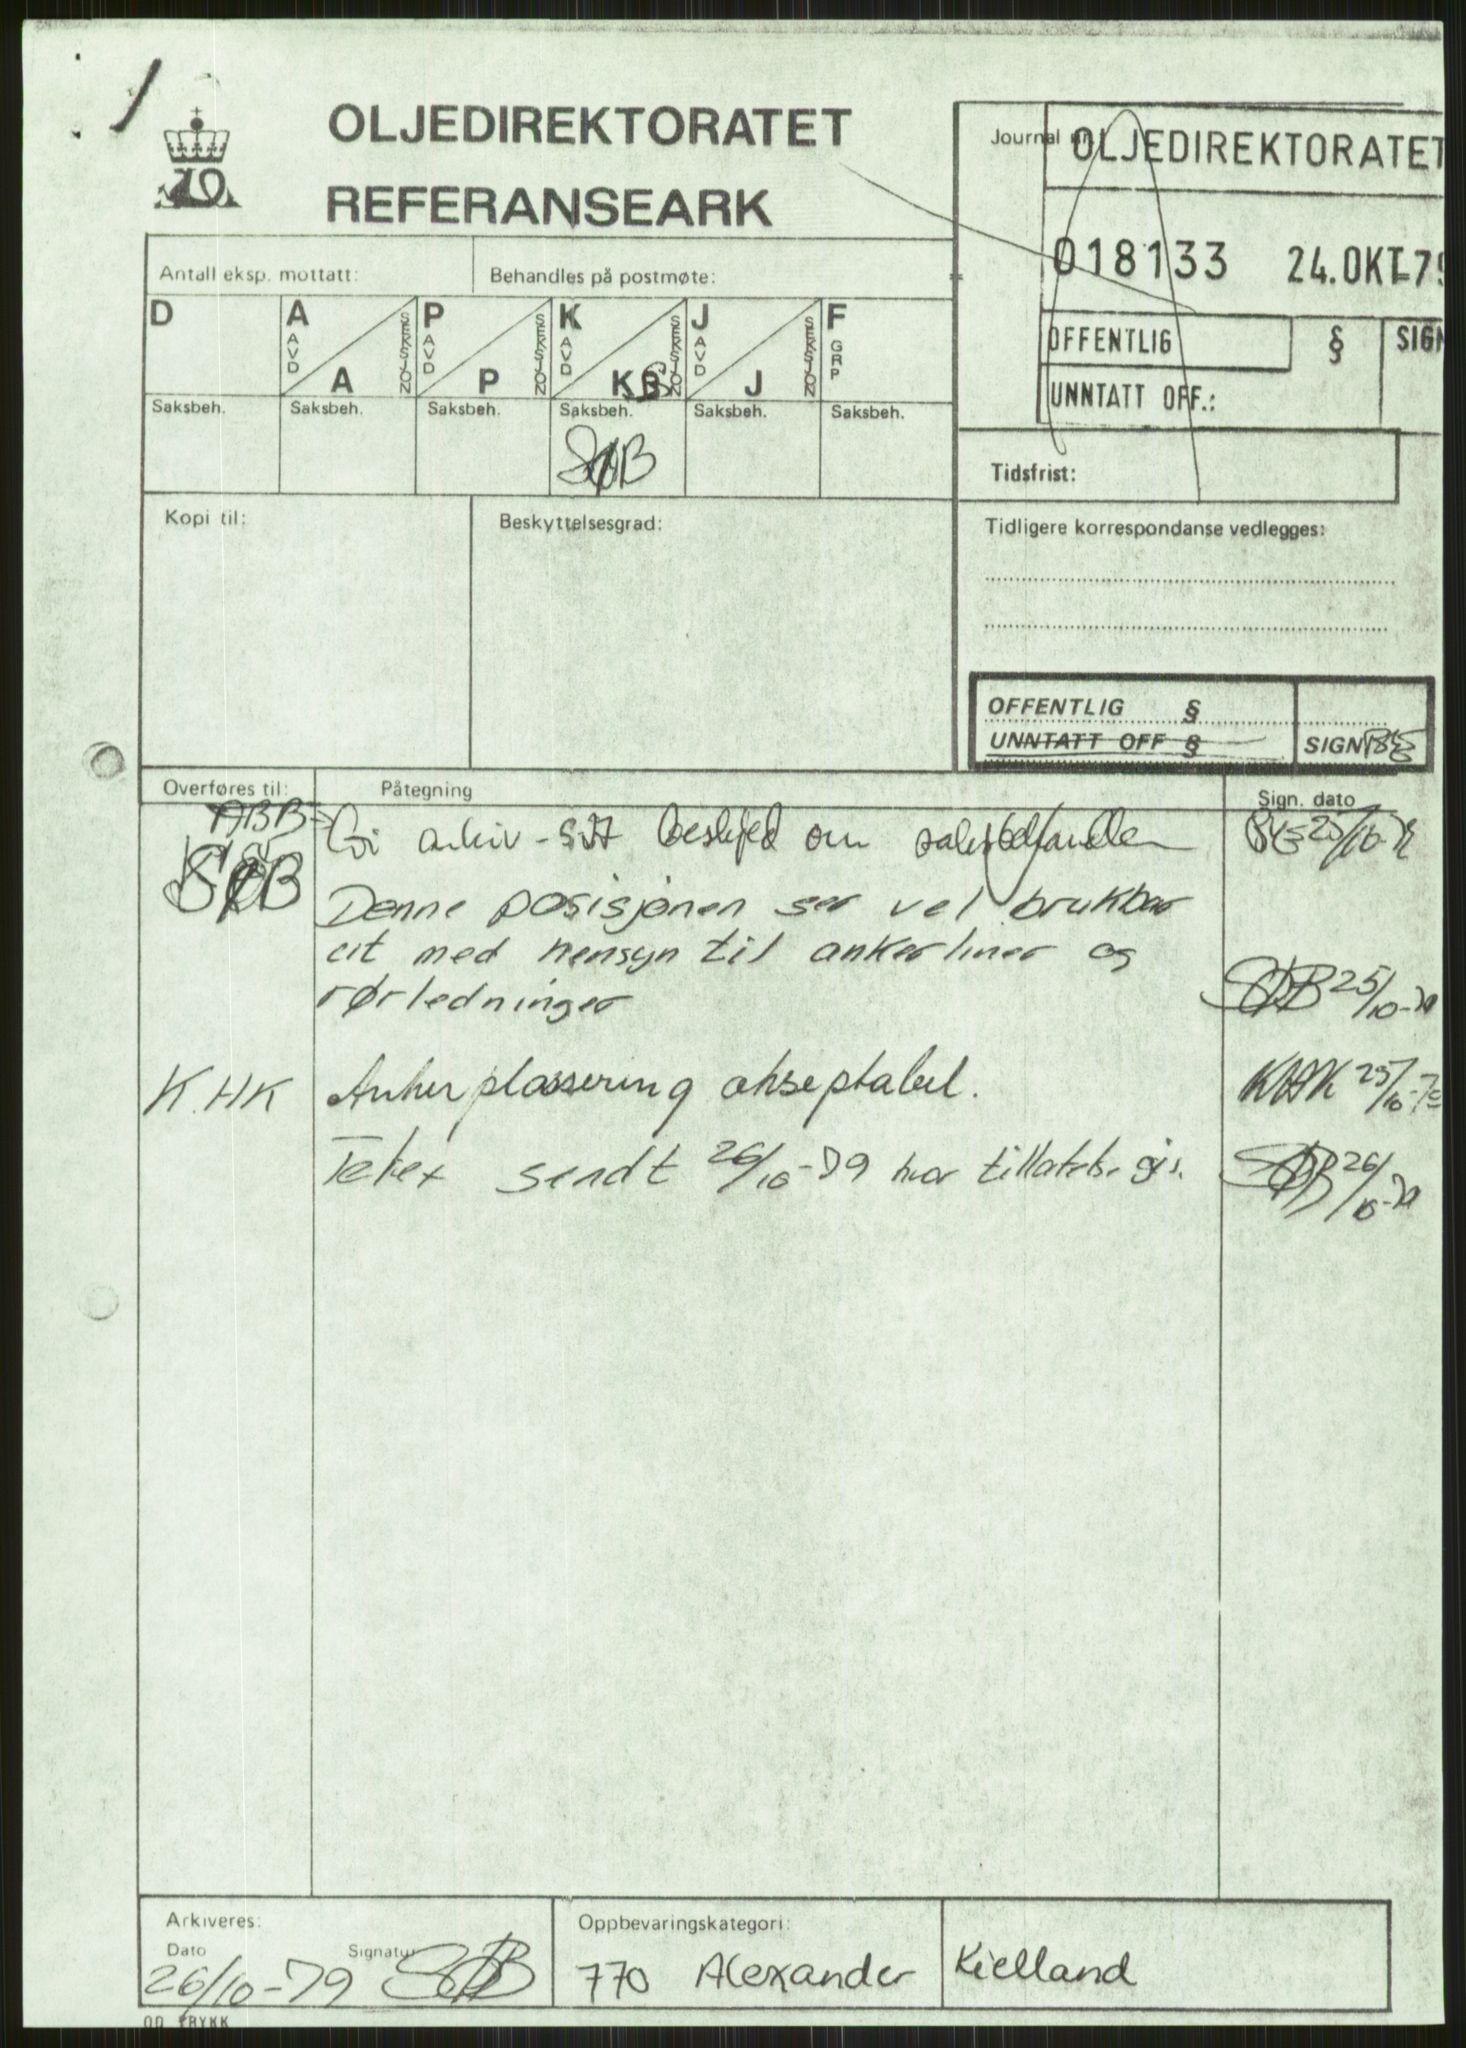 OLJEDIREKTORATET
REFERANSEARK
Journal nr.
OLJEDIREKTORATET
018133 24.OKT.79
OFFENTLIG § SIGN
UNNTATT OFF.:
Antall eksp. mottatt: Behandles på postmøte:
D A AVD SEKSJON A P AVD SEKSJON P K AVD SEKSJON K J AVD SEKSJON J F GRP
Saksbeh. Saksbeh. Saksbeh. Saksbeh. Saksbeh. Saksbeh.
SØB
Tidsfrist:
Kopi til: Beskyttelsesgrad: Tidligere korrespondanse vedlegges:
OFFENTLIG §
UNNTATT OFF § SIGN
Overføres til: Påtegning Sign. dato
ABB Gi arkiv - beskjed om saksbehandler 25/10-79
SØB
Denne posisjonen ser vel brukbar
ut med hensyn til ankerliner og
rørledninger SØB 25/10-79
K.HK Ankerplassering akseptabel. KHK 25/10-79
Telex sendt 26/10-79 hvor tillatelse gis. SØB 26/10-79
Arkiveres: Oppbevaringskategori:
Dato Signatur
26/10-79 SØB 770 Alexander Kielland
OD TRYKK